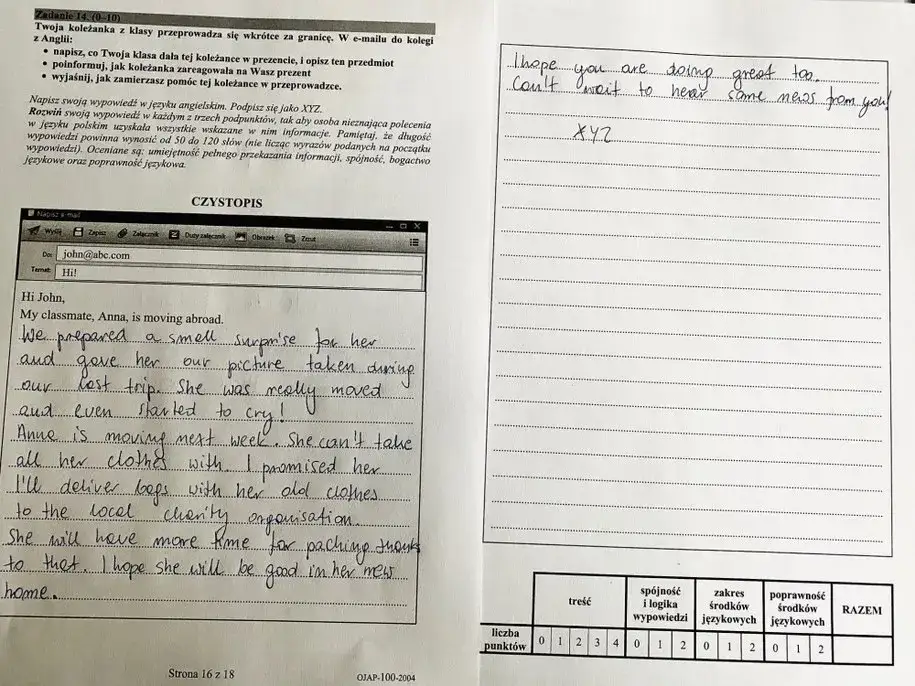 Zadanie 14. (0–10)
Twoja koleżanka z klasy przeprowadza się wkrótce za granicę. W e-mailu do kolegi
z Anglii:
• napisz, co Twoja klasa dała tej koleżance w prezencie, i opisz ten przedmiot
• poinformuj, jak koleżanka zareagowała na Wasz prezent
• wyjaśnij, jak zamierzasz pomóc tej koleżance w przeprowadzce.
Napisz swoją wypowiedź w języku angielskim. Podpisz się jako XYZ.
Rozwiń swoją wypowiedź w każdym z trzech podpunktów, tak aby osoba nieznająca polecenia
w języku polskim uzyskała wszystkie wskazane w nim informacje. Pamiętaj, że długość
wypowiedzi powinna wynosić od 50 do 120 słów (nie licząc wyrazów podanych na początku
wypowiedzi). Oceniane są: umiejętność pełnego przekazania informacji, spójność, bogactwo
językowe oraz poprawność językowa.
CZYSTOPIS
Napisz e-mail
Wyślij Zapisz Załącznik Duży załącznik Obrazek Zrzut
Do: john@abc.com
Temat: Hi!
Hi John,
My classmate, Anna, is moving abroad.
We prepared a small surprise for her
and gave her our picture taken during
our last trip. She was really moved
and even started to cry!
Anna is moving next week. She can't take
all her clothes with. I promised her
I'll deliver bags with her old clothes
to the local charity organisation.
She will have more time for packing thanks
to that. I hope she will be good in her new
home.
Strona 16 z 18
OJAP-100-2004
I hope you are doing great too.
Can't wait to hear some news from you!
XYZ
treść
spójność i logika wypowiedzi
zakres środków językowych
poprawność środków językowych
RAZEM
liczba punktów 0 1 2 3 4 0 1 2 0 1 2 0 1 2